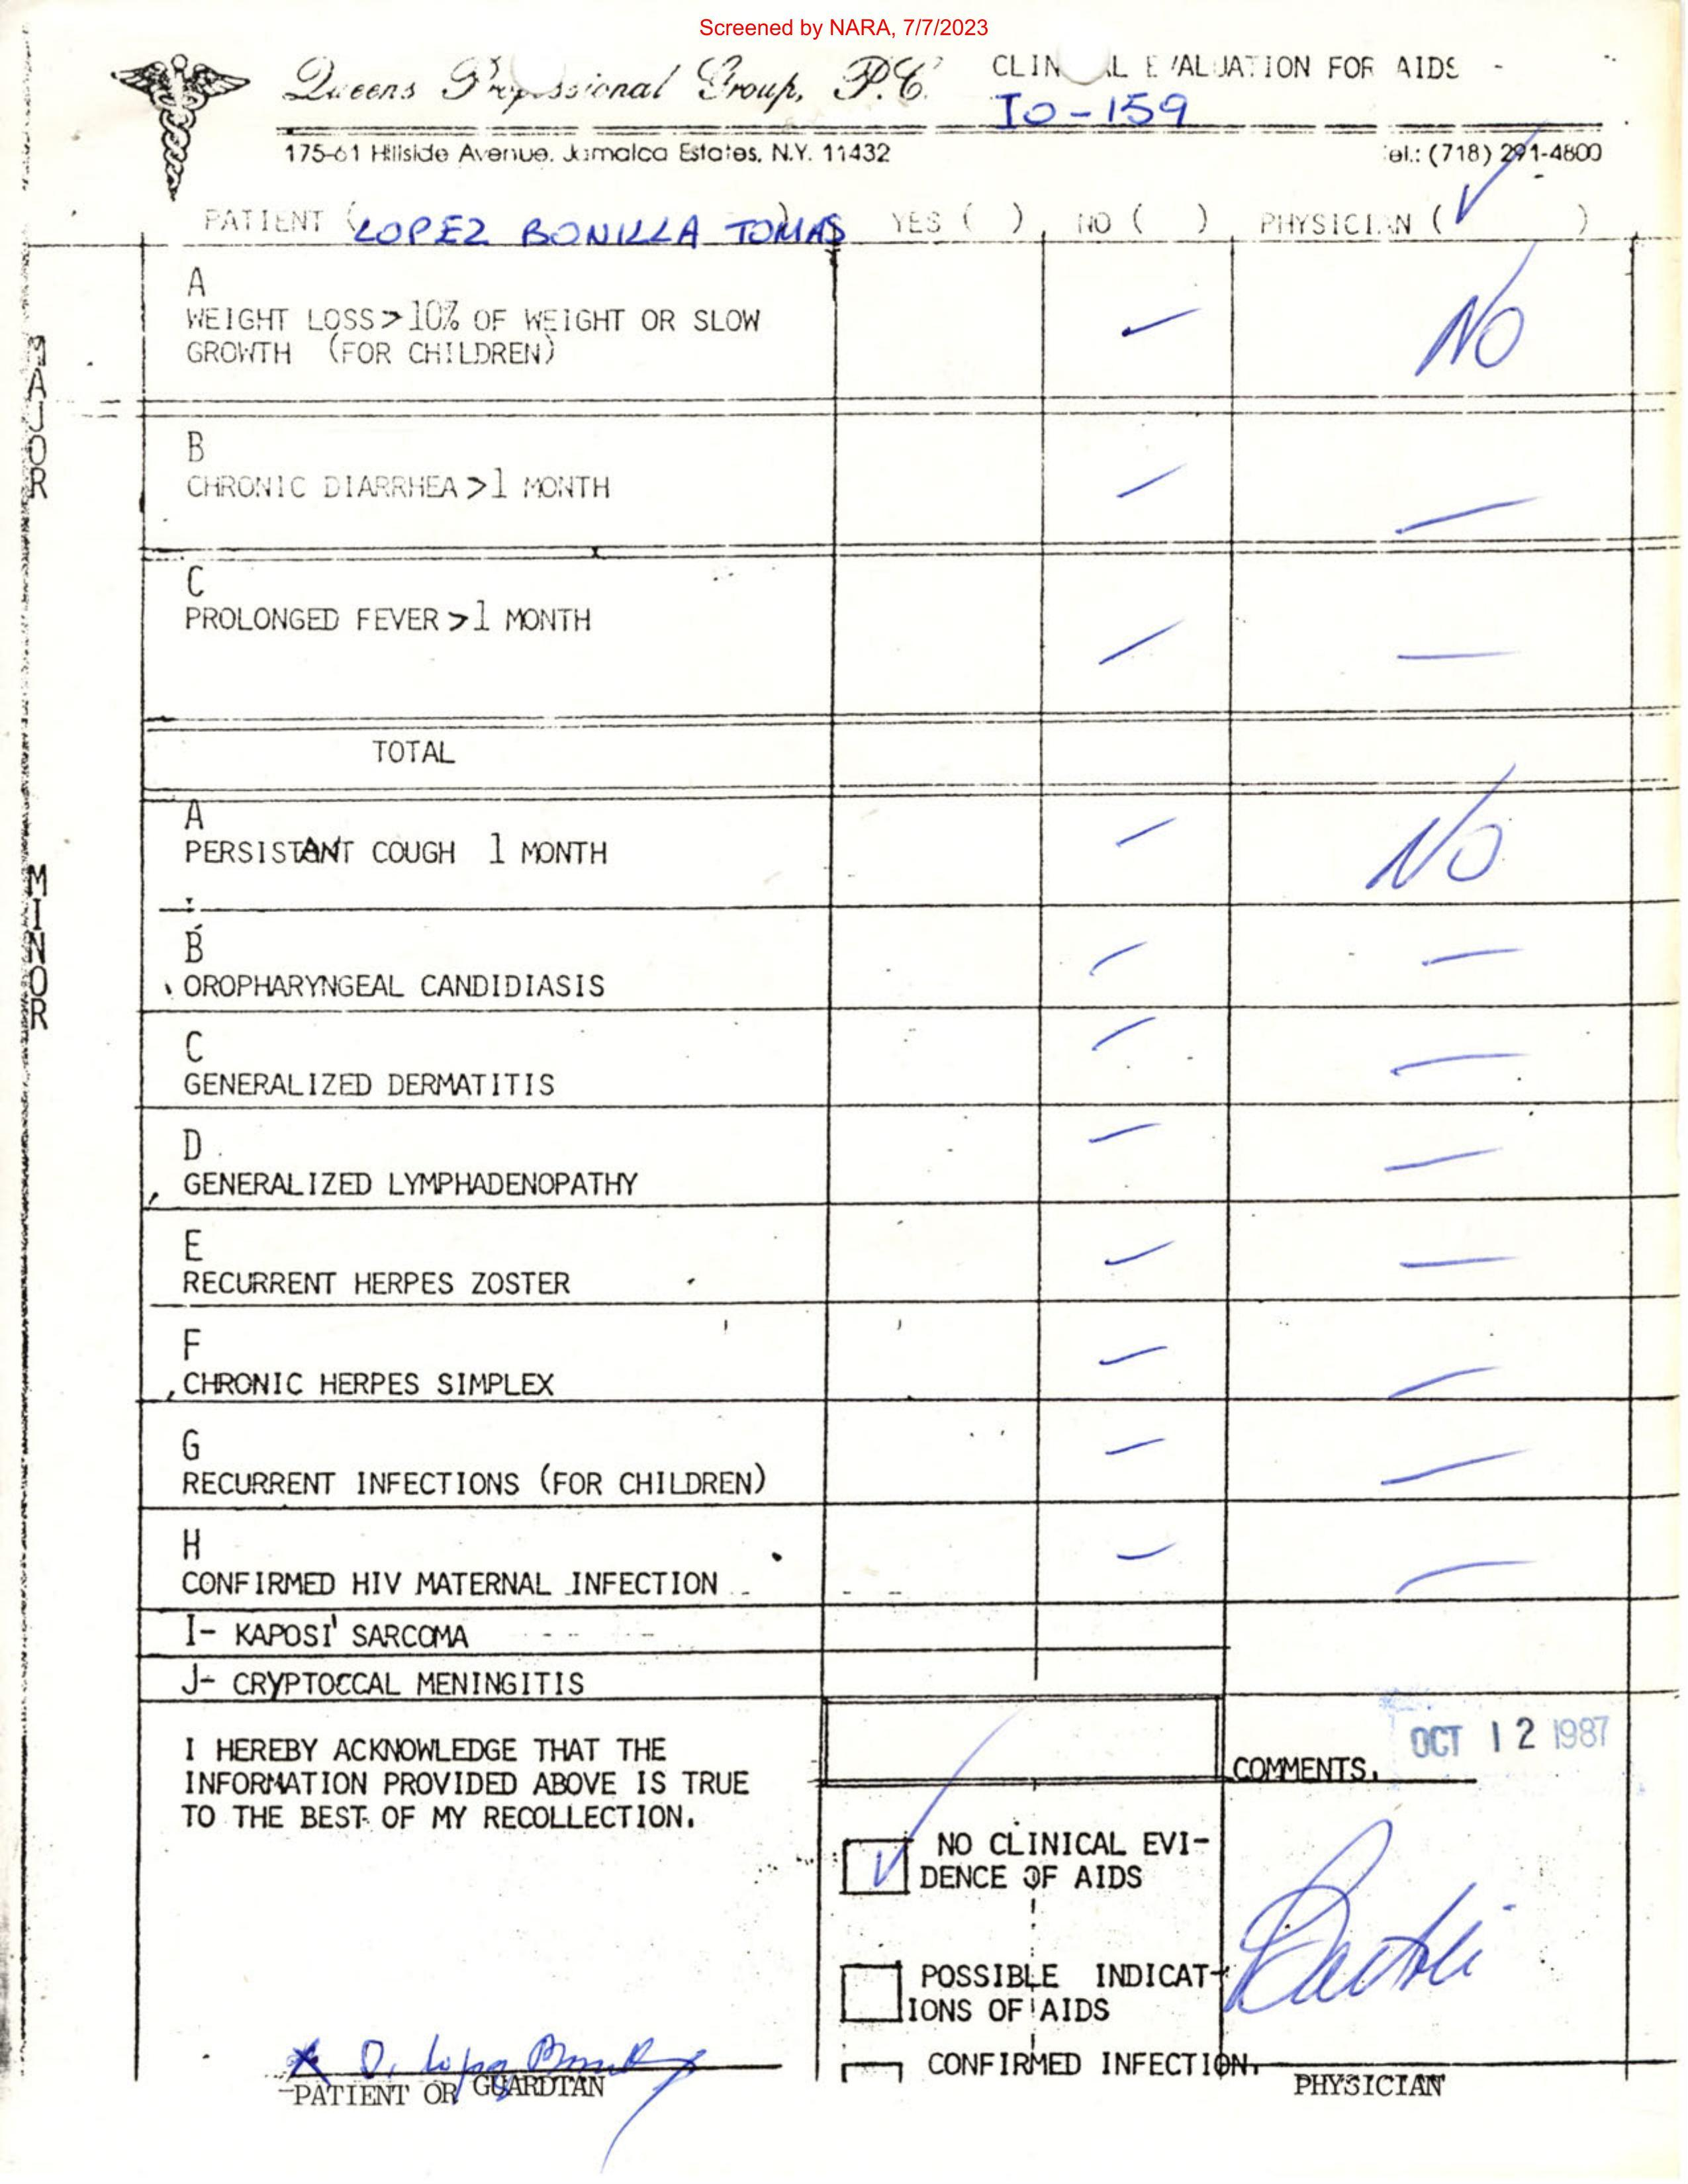 Screened by NARA, 7/7/2023
Queens Professional Group, P.C. CLINICAL EVALUATION FOR AIDS -
IO-159
175-61 Hillside Avenue, Jamaica Estates, N.Y. 11432 Tel.: (718) 291-4800
PATIENT (LOPEZ BONILLA TOMAS) YES ( ) NO ( ) PHYSICIAN (✓)
MAJOR
A
WEIGHT LOSS > 10% OF WEIGHT OR SLOW — NO
GROWTH (FOR CHILDREN)
B
CHRONIC DIARRHEA >1 MONTH — —
C
PROLONGED FEVER >1 MONTH — —
TOTAL
MINOR
A
PERSISTANT COUGH 1 MONTH — NO
B
OROPHARYNGEAL CANDIDIASIS — —
C
GENERALIZED DERMATITIS — —
D
GENERALIZED LYMPHADENOPATHY — —
E
RECURRENT HERPES ZOSTER — —
F
CHRONIC HERPES SIMPLEX — —
G
RECURRENT INFECTIONS (FOR CHILDREN) — —
H
CONFIRMED HIV MATERNAL INFECTION — —
I- KAPOSI' SARCOMA
J- CRYPTOCCAL MENINGITIS
I HEREBY ACKNOWLEDGE THAT THE
INFORMATION PROVIDED ABOVE IS TRUE
TO THE BEST OF MY RECOLLECTION.
OCT 12 1987
COMMENTS.
✓ NO CLINICAL EVI-
DENCE OF AIDS
POSSIBLE INDICAT-
IONS OF AIDS
CONFIRMED INFECTION.
PATIENT OR GUARDIAN
PHYSICIAN